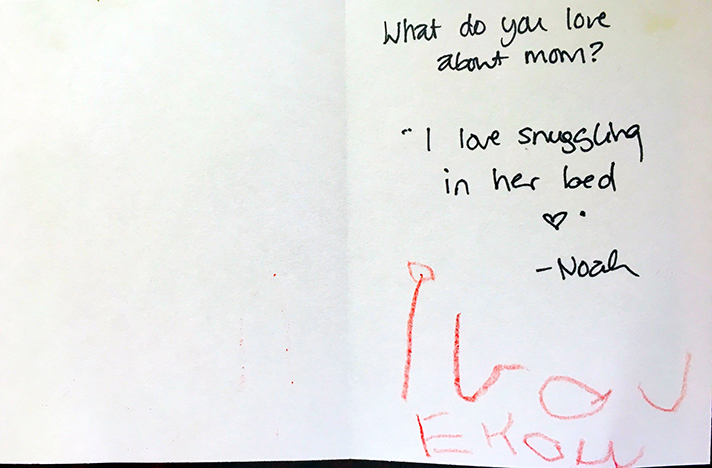 What do you love
about mom?
"I love snuggling
in her bed
♡.
-Noah
I LOV
EKOU